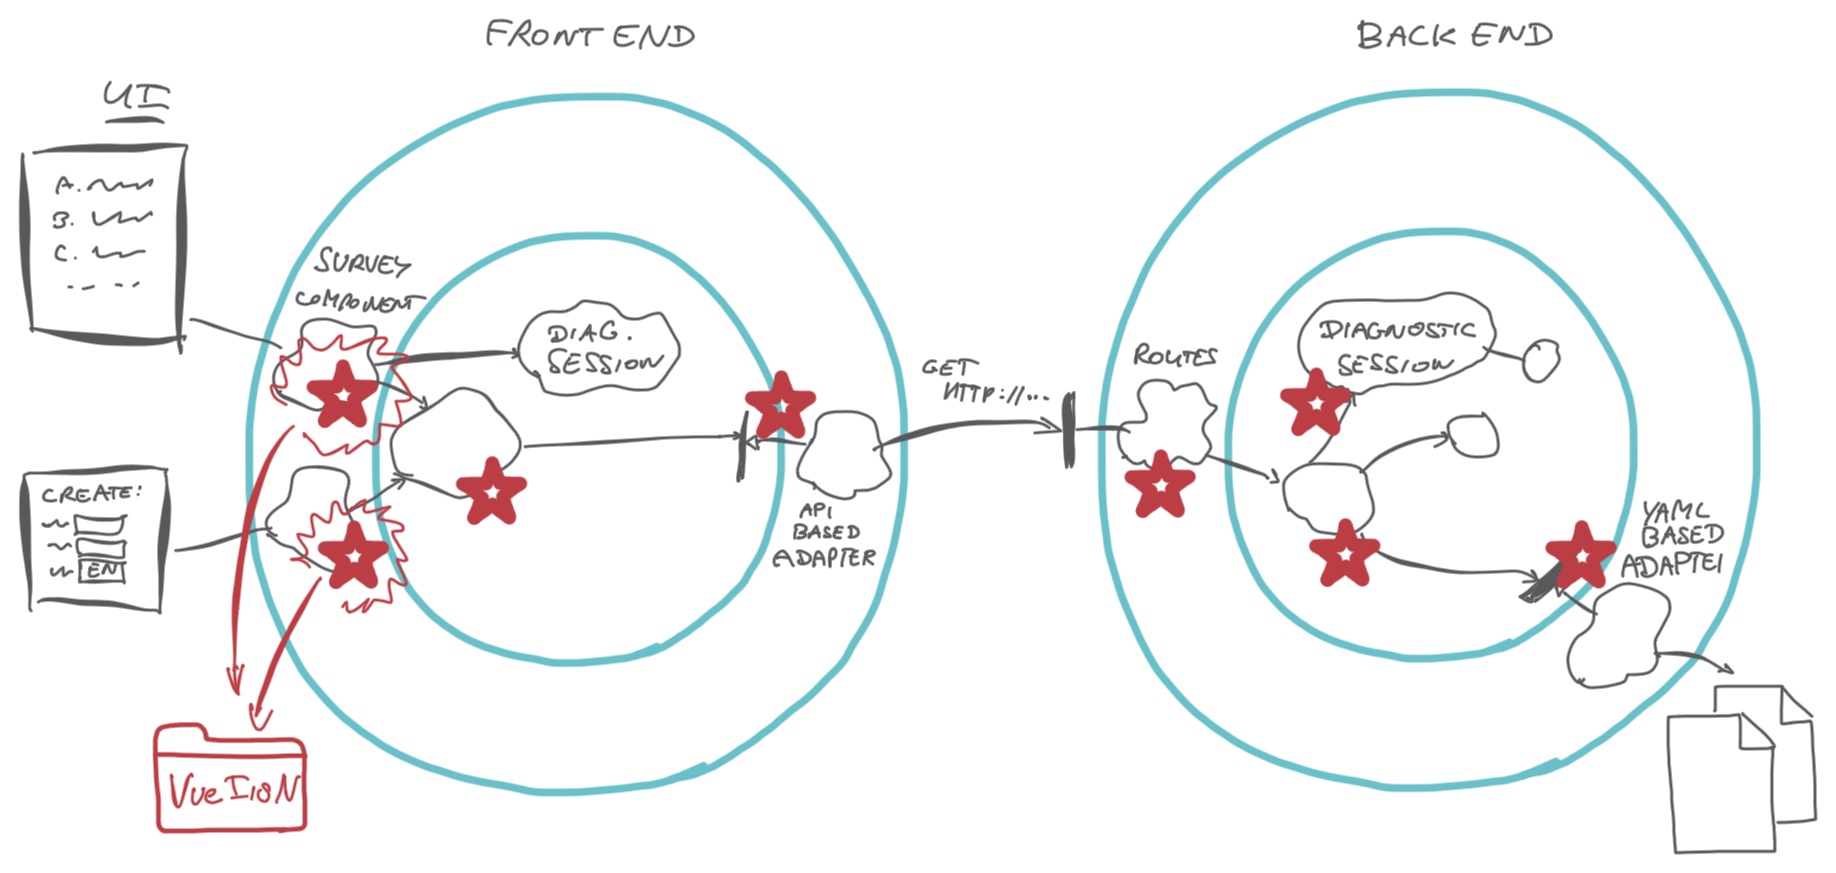 FRONT END
BACK END
UI
A.
B.
C.
SURVEY
COMPONENT
DIAG.
SESSION
CREATE:
EN
API
BASED
ADAPTER
GET
HTTP://...
ROUTES
DIAGNOSTIC
SESSION
YAML
BASED
ADAPTEI
Vue I18N